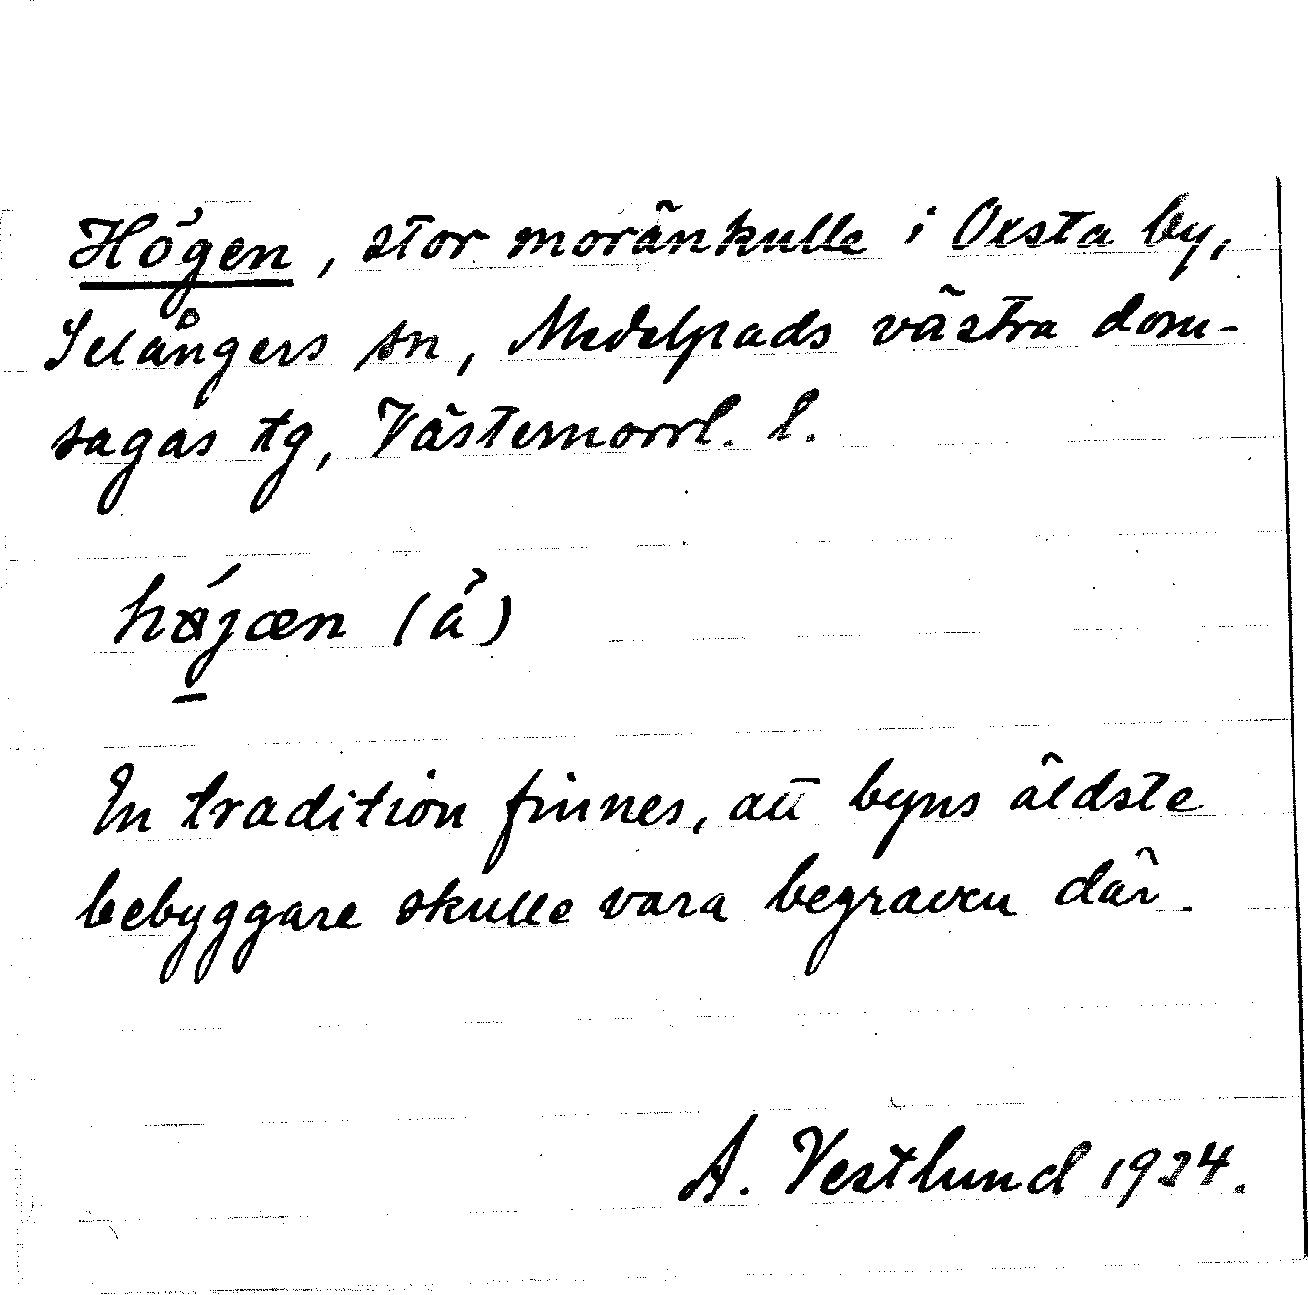 Högen, stor moränkulle i Oxsta by,
Selångers sn, Medelpads västra dom-
sagas tg, Västernorrl. l.
(å)
En tradition finnes, att byns äldste
bebyggare skulle vara begraven där.
A. Vestlund 1924.